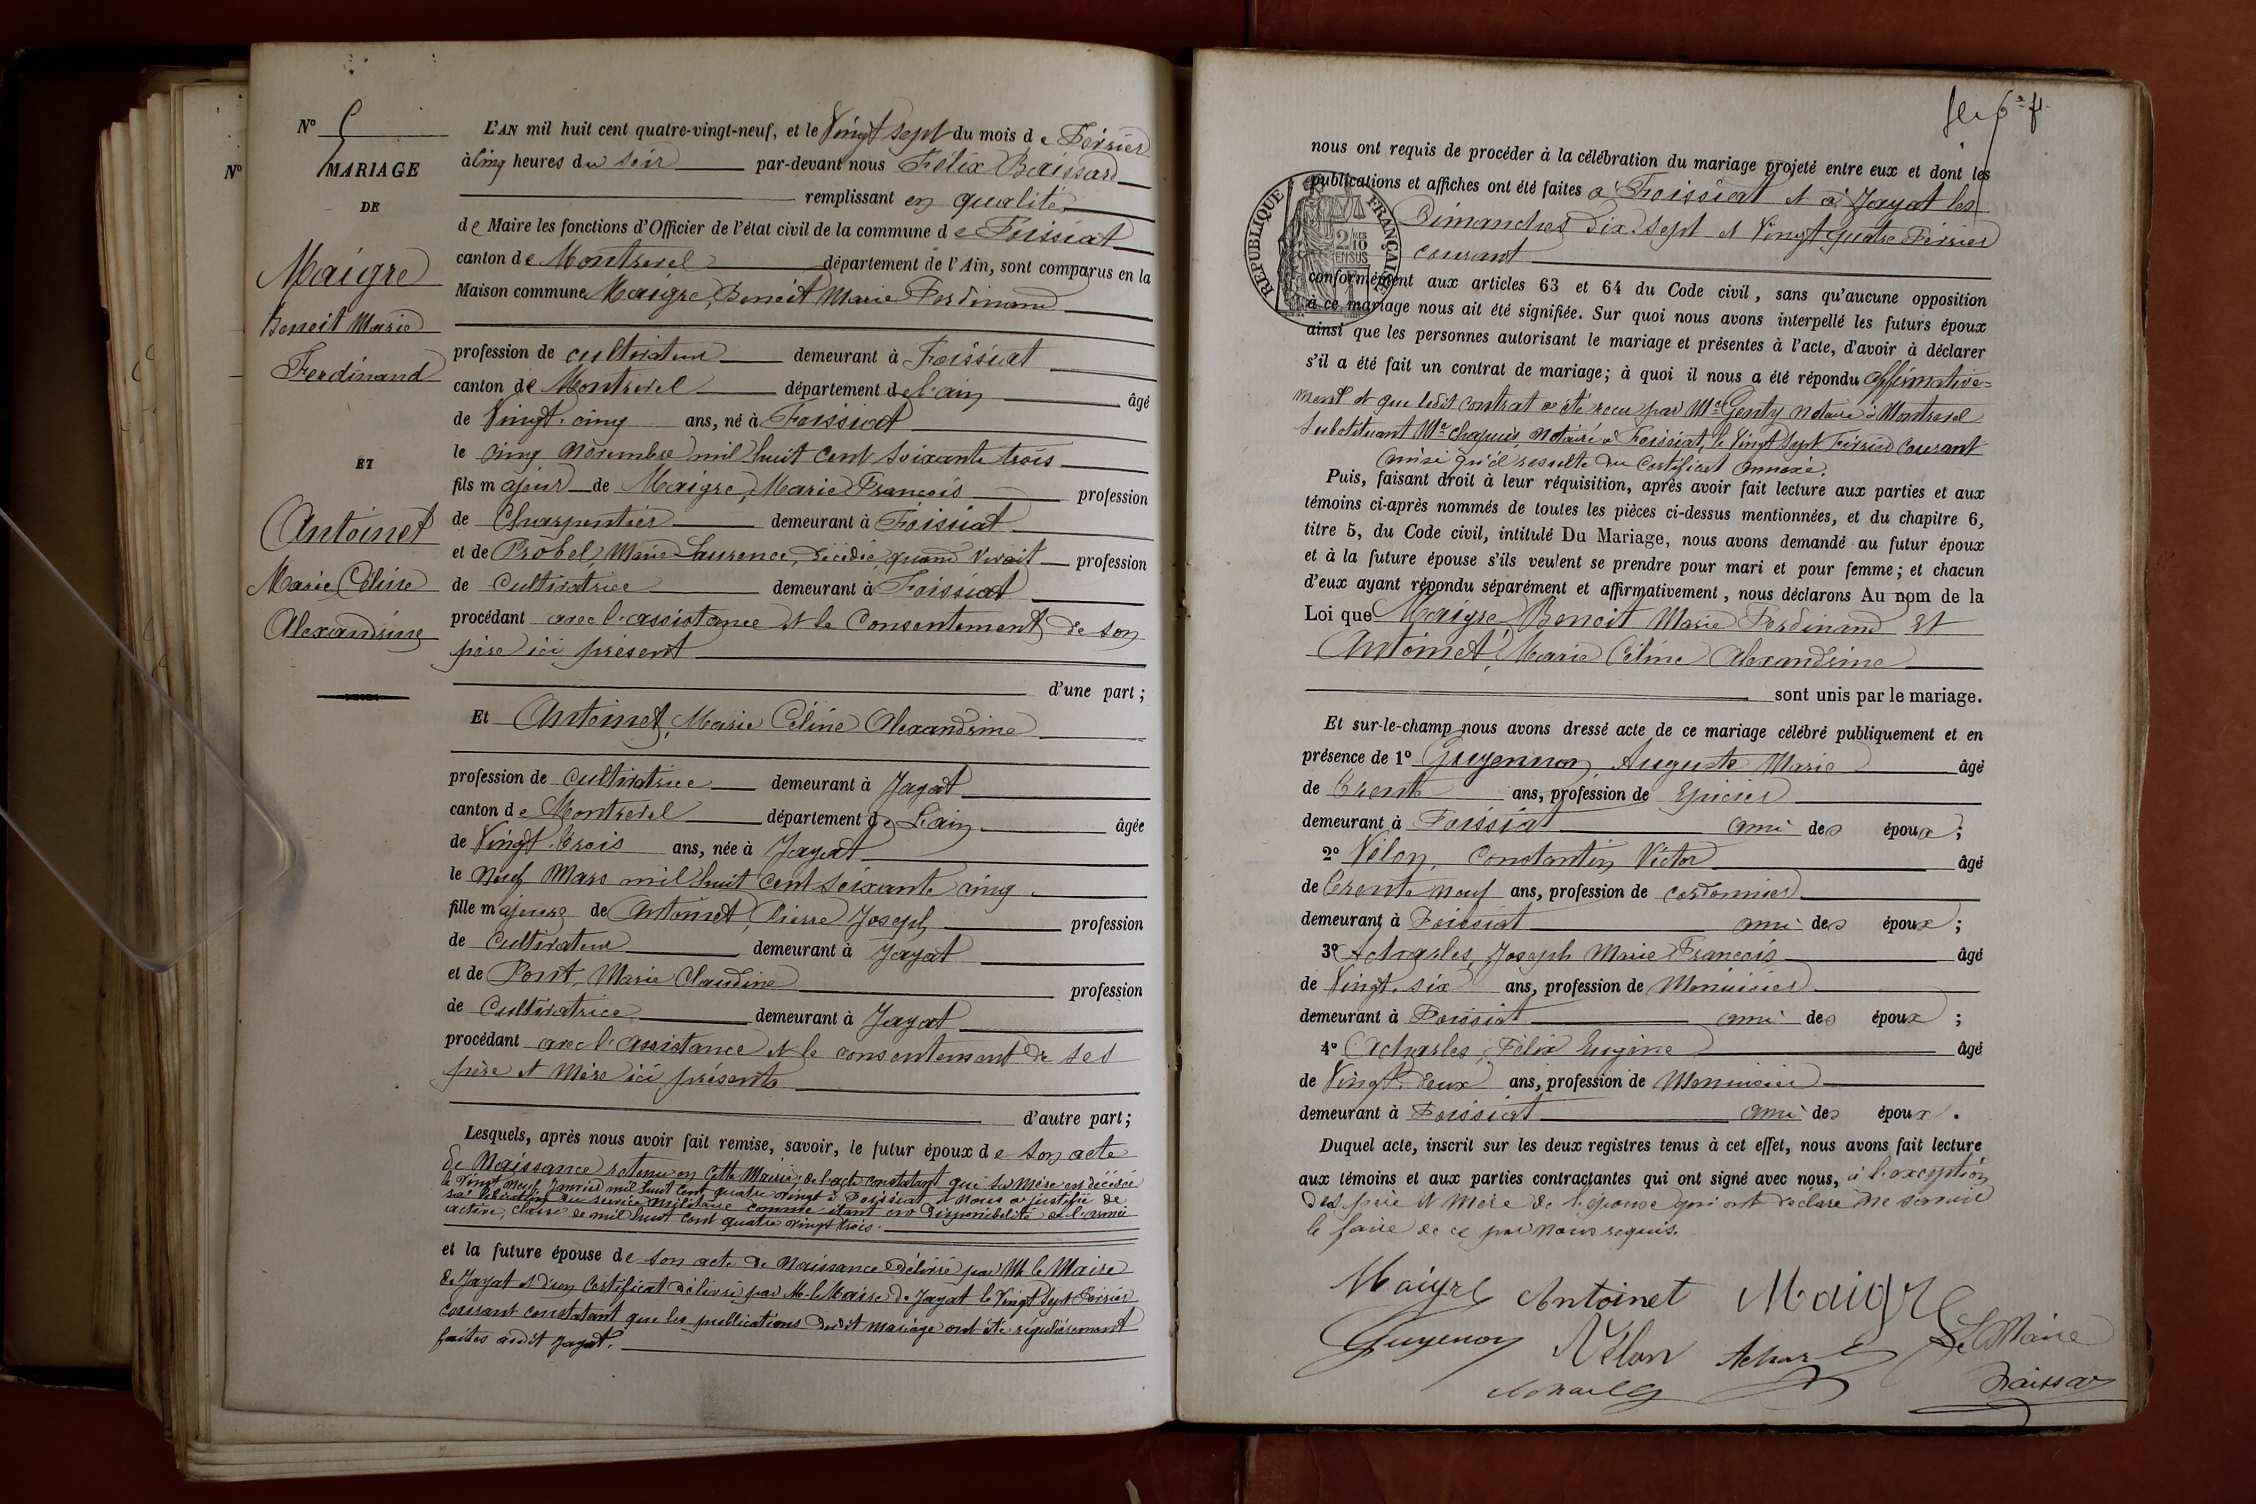 N° 5
L'AN mil huit cent quatre-vingt-neuf, et le Vingt sept du mois de Février
N°
MARIAGE
à Cinq heures du soir par-devant nous Félix Baissard
DE
remplissant en qualité
de Maire les fonctions d'Officier de l'état civil de la commune de Foissiat
Maigre
canton de Montrevel département de l'Ain, sont comparus en la
Benoit Marie
Maison commune Maigre, Benoit Marie Ferdinand
Ferdinand
profession de cultivateur demeurant à Foissiat
canton de Montrevel département de l'ain âgé
de Vingt-cinq ans, né à Foissiat
ET
le cinq Novembre mil huit cent soixante trois
fils majeur de Maigre, Marie François profession
Antoinet
de Charpentier demeurant à Foissiat
et de Probel, Marie Laurence, décédée, quand vivait profession
Marie Céline
de cultivatrice demeurant à Foissiat
Alexandrine
procédant avec l'assistance et le Consentement de son
père ici présent
d'une part ;
Et Antoinet, Marie Céline Alexandrine
profession de cultivatrice demeurant à Jayat
canton de Montrevel département de L'ain âgée
de Vingt-trois ans, née à Jayat
le Neuf Mars mil huit cent soixante cinq
fille majeure de Antoinet, Pierre Joseph profession
de Cultivateur demeurant à Jayat
et de Pont, Marie Claudine profession
de Cultivatrice demeurant à Jayat
procédant avec l'assistance et le consentement de ses
père et mère ici présents
d'autre part ;
Lesquels, après nous avoir fait remise, savoir, le futur époux de son acte
de Naissance retenu en cette Mairie, de l'acte constatant que sa Mère est décédée
le Vingt neuf Janvier mil huit cent quatre vingt à Foissiat, et nous a justifié de
sa libération du service militaire comme étant en disponibilité de l'armée
active, classe de mil huit cent quatre vingt trois.
et la future épouse de son acte de Naissance délivré par M. le Maire
de Jayat et d'un Certificat délivré par M. le Maire de Jayat le Vingt Sept Février
courant constatant que les publications dudit mariage ont été régulièrement
faites audit Jayat.
nous ont requis de procéder à la célébration du mariage projeté entre eux et dont les
publications et affiches ont été faites à Foissiat et à Jayat les
Dimanches Dix-sept et Vingt quatre Février
courant
RÉPUBLIQUE FRANÇAISE
2/10 EN SUS
conformément aux articles 63 et 64 du Code civil, sans qu'aucune opposition
à ce mariage nous ait été signifiée. Sur quoi nous avons interpellé les futurs époux
ainsi que les personnes autorisant le mariage et présentes à l'acte, d'avoir à déclarer
s'il a été fait un contrat de mariage; à quoi il nous a été répondu affirmative-
ment et que ledit contrat a été reçu par Me Genty notaire à Montrevel
Substituant Me Chapuis, notaire à Foissiat, le Vingt Sept Février Courant
ainsi qu'il resulte du Certificat annexé.
Puis, faisant droit à leur réquisition, après avoir fait lecture aux parties et aux
témoins ci-après nommés de toutes les pièces ci-dessus mentionnées, et du chapitre 6,
titre 5, du Code civil, intitulé Du Mariage, nous avons demandé au futur époux
et à la future épouse s'ils veulent se prendre pour mari et pour femme; et chacun
d'eux ayant répondu séparément et affirmativement, nous déclarons Au nom de la
Loi que Maigre Benoit Marie Ferdinand Et
Antoinet, Marie Céline Alexandrine
sont unis par le mariage.
Et sur-le-champ nous avons dressé acte de ce mariage célébré publiquement et en
présence de 1° Guyennon, Auguste Marie âgé
de trente ans, profession de Epicier
demeurant à Foissiat ami des époux ;
2° Vélon, Constantin Victor âgé
de trente neuf ans, profession de cordonnier
demeurant à Foissiat ami des époux ;
3° Acharles, Joseph Marie François âgé
de Vingt-six ans, profession de Menuisier
demeurant à Foissiat ami des époux ;
4° Acharles, Félix Eugène âgé
de Vingt-deux ans, profession de Menuisier
demeurant à Foissiat ami des époux.
Duquel acte, inscrit sur les deux registres tenus à cet effet, nous avons fait lecture
aux témoins et aux parties contractantes qui ont signé avec nous, à l'exception
des père et mère de l'épouse qui ont déclaré ne savoir
le faire de ce par Nous requis.
Maigre Antoinet Maigre
Guyenon Vélon Achar Le Maire
Baissard